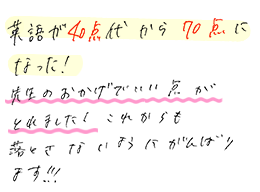 英語が40点代から70点に
なった！
先生のおかげでいい点が
とれました！これからも
落とさないようにがんばり
ます!!!